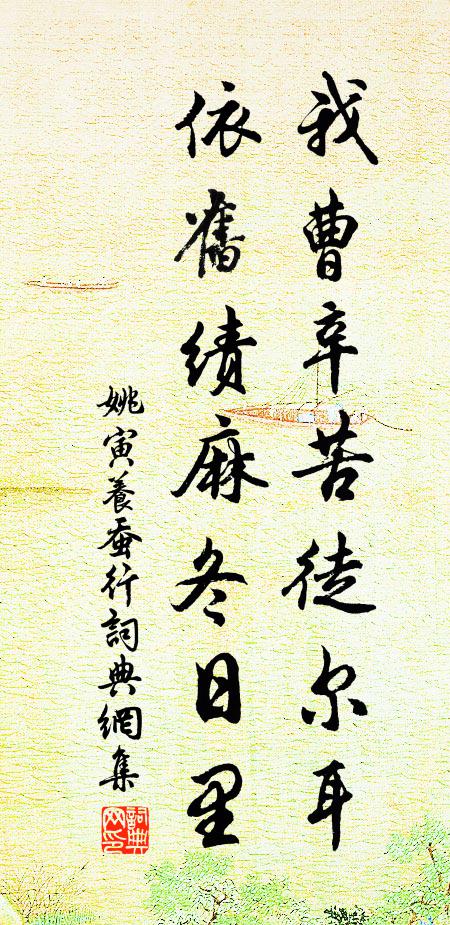 我曹辛苦徒尔耳
依舊績麻冬日里
姚寅養蚕行詞典網集
詞典网印